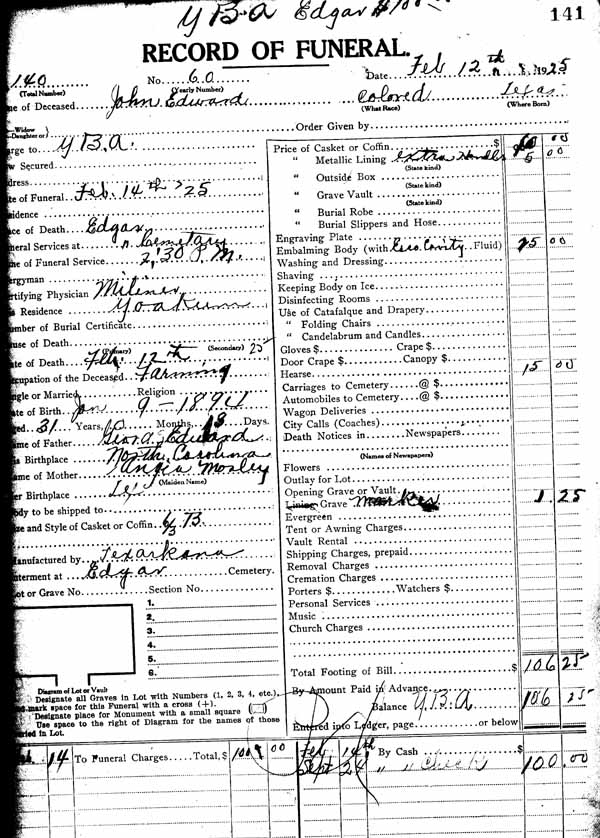 Y B.A Edgar $100.00
141
RECORD OF FUNERAL.
140 No. 60 Date Feb 12th 1925
(Total Number) (Yearly Number)
me of Deceased John Edward colored Texas
(What Race) (Where Born)
Widow
Daughter of Order Given by
arge to Y.B.A.
w Secured
dress
te of Funeral Feb. 14th '25
sidence
ace of Death Edgar
neral Services at Cemetary
me of Funeral Service 2;30 P.M.
ergyman
rtifying Physician Milner
s Residence Yoakum
mber of Burial Certificate
use of Death
(Primary) (Secondary)
ate of Death Feb. 12th, 25
cupation of the Deceased Farming
ngle or Married Religion
ate of Birth Jan 9-1894
ed 31 Years, Months, 3 Days.
me of Father Edward
s Birthplace North Carolina
ame of Mother Angia Mosley
(Maiden Name)
er Birthplace
ody to be shipped to
ze and Style of Casket or Coffin 6/3 B
anufactured by Texarkana
nterment at Edgar Cemetery.
ot or Grave No. Section No.
1.
2.
3.
4.
5.
6.
Diagram of Lot or Vault
Designate all Graves in Lot with Numbers (1, 2, 3, 4, etc.),
nd mark space for this Funeral with a cross (+).
Designate place for Monument with a small square
Use space to the right of Diagram for the names of those
uried in Lot.
Price of Casket or Coffin $ 60 00
" Metallic Lining extra Handles 5 00
(State kind)
" Outside Box
(State kind)
" Grave Vault
(State kind)
" Burial Robe
" Burial Slippers and Hose
Engraving Plate
Embalming Body (with Cavity Fluid) 25 00
Washing and Dressing
Shaving
Keeping Body on Ice
Disinfecting Rooms
Use of Catafalque and Drapery
" Folding Chairs
" Candelabrum and Candles
Gloves $ Crape $
Door Crape $ Canopy $
Hearse 15 00
Carriages to Cemetery @ $
Automobiles to Cemetery @ $
Wagon Deliveries
City Calls (Coaches)
Death Notices in Newspapers
(Names of Newspapers)
Flowers
Outlay for Lot
Opening Grave or Vault
Lining Grave Marker 1 25
Evergreen
Tent or Awning Charges
Vault Rental
Shipping Charges, prepaid
Removal Charges
Cremation Charges
Porters $ Watchers $
Personal Services
Music
Church Charges
Total Footing of Bill $ 106 25
By Amount Paid in Advance
Balance Y.B.A 106 25
Entered into Ledger, page or below
14 To Funeral Charges Total, $ 00 Feb 14th By Cash $
Sept 24 " " Check 100.00